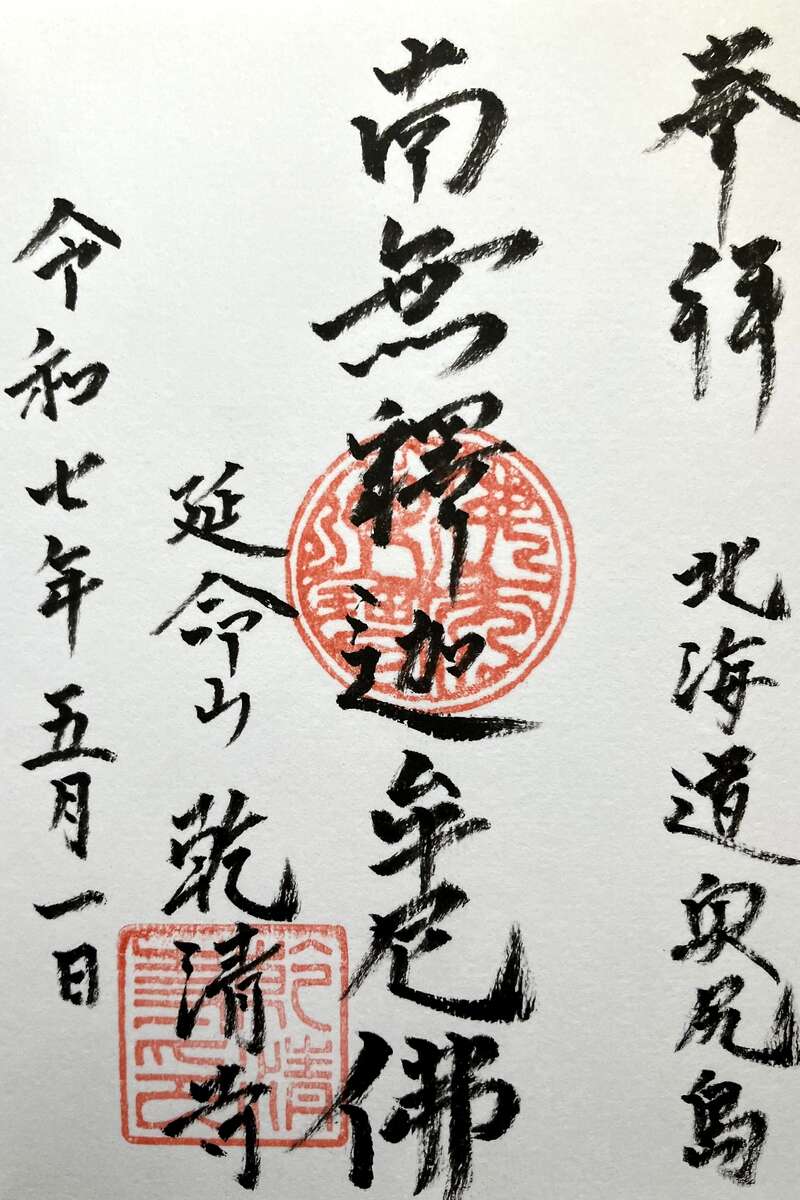 奉拝　北海道奥尻島
南無釋迦牟尼佛
延命山　乾清寺
令和七年五月一日